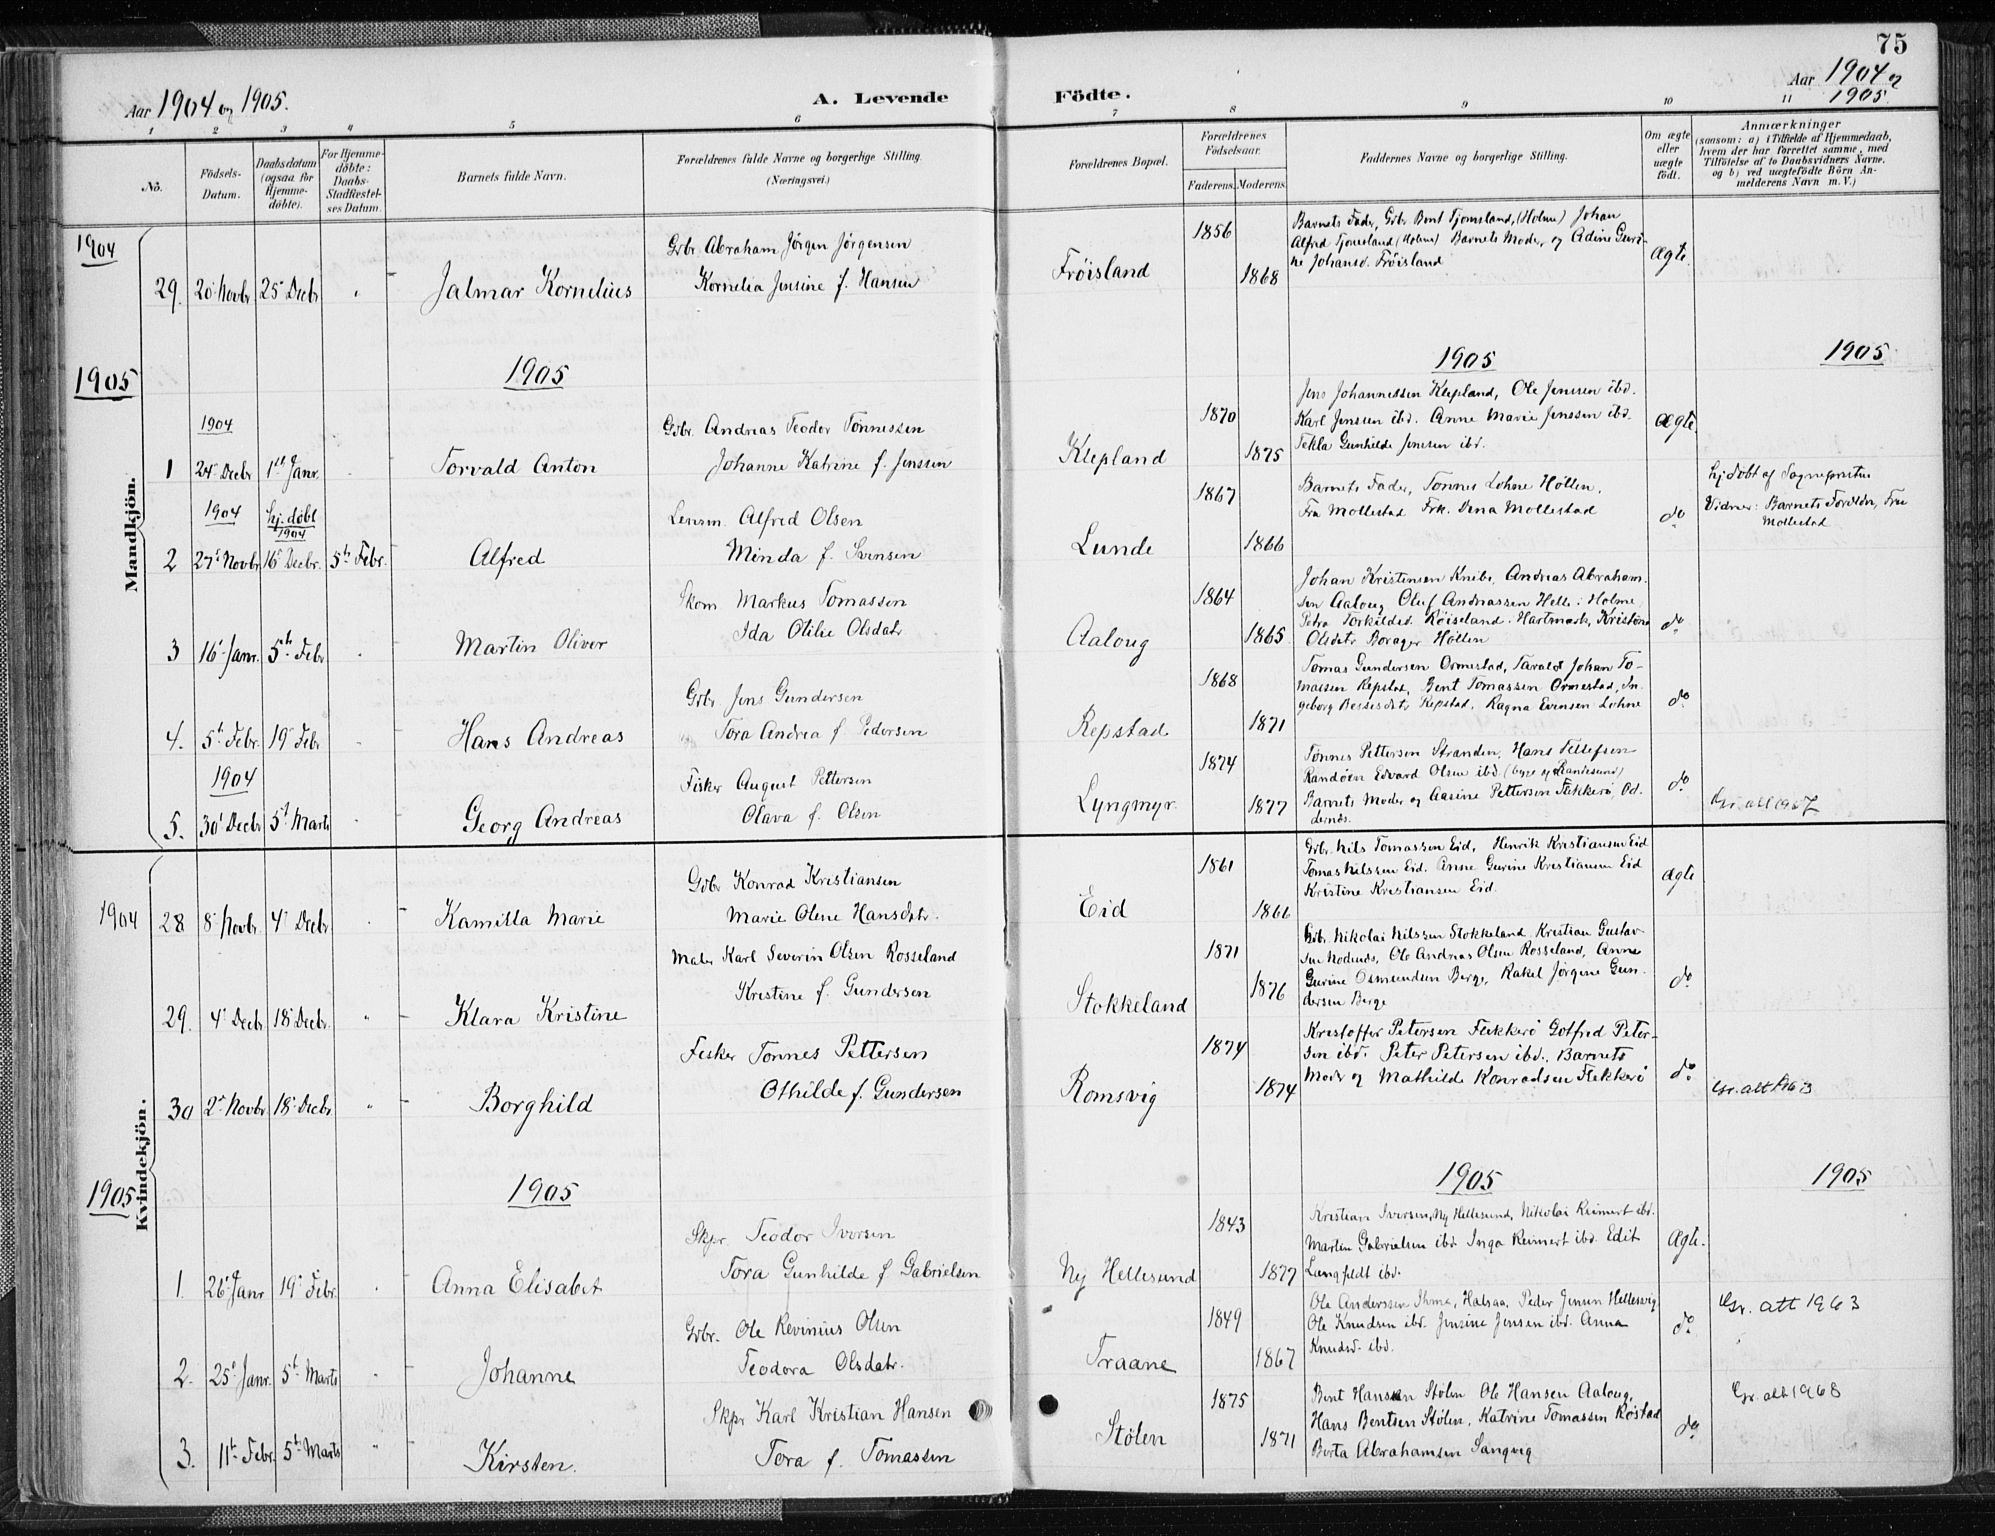 75
Aar 1904 og 1905.
A. Levende Födte.
Aar 1904 og 1905.
1 2 3 4 5 6 7 8 9 10 11
No.
Födsels-Datum.
Daabsdatum (ogsaa for Hjemme-döbte).
For Hjemme-döbte: Daabs-Stadfæstel-ses Datum.
Barnets fulde Navn.
Forældrenes fulde Navne og borgerlige Stilling. (Næringsvei.)
Forældrenes Bopæl.
Forældrenes Födselsaar.
Faderens. Moderens.
Faddernes Navne og borgerlige Stilling.
Om ægte eller uægte födt.
Anmærkninger
(saasom: a) i Tilfælde af Hjemmedaab,
hvem der har forrettet samme, med
Tilföielse af to Daabsvidners Navne,
og b) ved uægtefödte Börn An-
melderens Navn m. V.)
Mandkjön.
1904
29. 20 Novbr 25 Decbr Jalmar Kornelius
Gbr. Abraham Jörgen Jörgensen
Kornelia Jensine f. Hansen
Fröisland 1856 1868
Barnets Fader, Gbr. Bent Tjomsland, (Holme) Johan
Alfred Tjomsland (Holme) Barnets Moder, og Adine Guri-
ne Johansd. Fröisland
Ægte.
1905 1905 1905 1905
1904
1 24 Decbr 1ste Janr. Torvald Anton
Gbr. Andreas Teodor Tönnessen
Johanne Katrine f. Jenssen
Klepland 1870 1875
Jens Johannessen Klepland, Ole Jenssen ibd.
Karl Jenssen ibd. Anne Marie Jenssen ibd.
Tekla Gunhilde Jenssen ibd.
Ægte.
1904 hj. döbt 1904
2 27 Novbr 16 Decbr. 5te Febr. Alfred
Lensm. Alfred Olsen
Minda f. Svensen
Lunde 1867 1866
Barnets Fader, Tönnes Lohne Höllen,
Fru Mollestad Frk. Dina Mollestad
do
hj. döbt af Sognepresten
Vidner: Barnets Foreldre, Fru
Mollestad
3 16 Janr. 5te Febr Martin Oliver
Skom Markus Tomassen
Ida Otilie Olsdatr
Aaloug 1864 1865
Johan Kristensen Knibe, Andreas Abraham-
sen Aaloug Oluf Andreassen Helle i Holme
Petra Torkildsd. Röiseland. Hartmark, Kristine
Olsdatr Borager Höllen
do
4. 5te Febr. 19 Febr Hans Andreas
Gbr Jens Gundersen
Tora Andrea f Pedersen
Repstad 1868 1871
Tomas Gundersen Ormestad, Tarald Johan To-
massen Repstad, Bent Tomassen Ormestad, In-
geborg Bessesdtr Repstad, Ragna Evensen Lohne
do
1904
5. 30 Decbr 5te Marts Georg Andreas
Fisker August Pettersen
Olava f. Olsen
Lyngmyr 1874 1877
Tönnes Pettersen Stranden, Hans Tellefsen
Randöen Edvard Olsen ibd. (begge af Randesund)
Barnets Moder og Aasine Pettersen Flekkerö, Od-
dernes.
do
Gr. att 1967
Kvindekjön.
1904
28 8 Novbr. 4 Decbr Kamilla Marie
Gbr Konrad Kristiansen
Marie Oline Hansdatr.
Eid 1861 1866
Gbr. Nils Tomassen Eid, Henrik Kristiansen Eid
Tomas Nilssen Eid. Anne Gurine Kristiansen Eid
Kristine Kristiansen Eid.
Ægte
29. 4 Decbr 18 Decbr. Klara Kristine
Maler Karl Severin Olsen Rosseland
Kristine f. Gundersen
Stokkeland 1871 1876
Gbr. Nikolai Nilssen Stokkeland Kristian Gustav-
sen Nodenes, Ole Andreas Olsen Rosseland, Anne
Gurine Osmundsen Berge, Rakel Jörgine Gun-
dersen Berge
do
30 2 Novbr. 18 Decbr. Borghild
Fisker Tönnes Pettersen
Othilde f. Gundersen
Romsvig 1874 1874
Kristoffer Petersen Flekkerö Gotfred Peter-
sen ibd. Peter Petersen ibd., Barnets
Moder og Mathilde Konradsen Flekkerö
do
Gr. att 1963
1905 1905 1905 1905
1. 26 Janr 19 Febr. Anna Elisabet
Skpr. Teodor Iversen
Tora Gunhilde f Gabrielsen
Ny Hellesund 1843 1877
Kristian Iversen, Ny Hellesund, Nikolai Reinert ibd.
Martin Gabrielsen ibd Inga Reinert ibd. Edit
Langfeldt ibd.
Ægte.
2. 25 Janr. 5te Marts Johanne
Gbr. Ole Revinius Olsen
Teodora Olsdatr.
Traane 1849 1867
Ole Anderssen Halsaa, Peder Jensen Hellesvig
Ole Knudsen ibd. Jensine Jensen ibd. Anna
Knudsd. ibd.
do
Gr. att 1963
3. 11te Febr. 5te Marts Kirsten.
Skpr Karl Kristian Hansen
Tora f. Tomassen
Stölen 1875 1871
Bent Hansen Stölen Ole Hansen Aaloug,
Hans Bentsen Stölen, Katrine Tomassen Röstad
Berta Abrahamsen Sangvig
do
Gr. att 1968